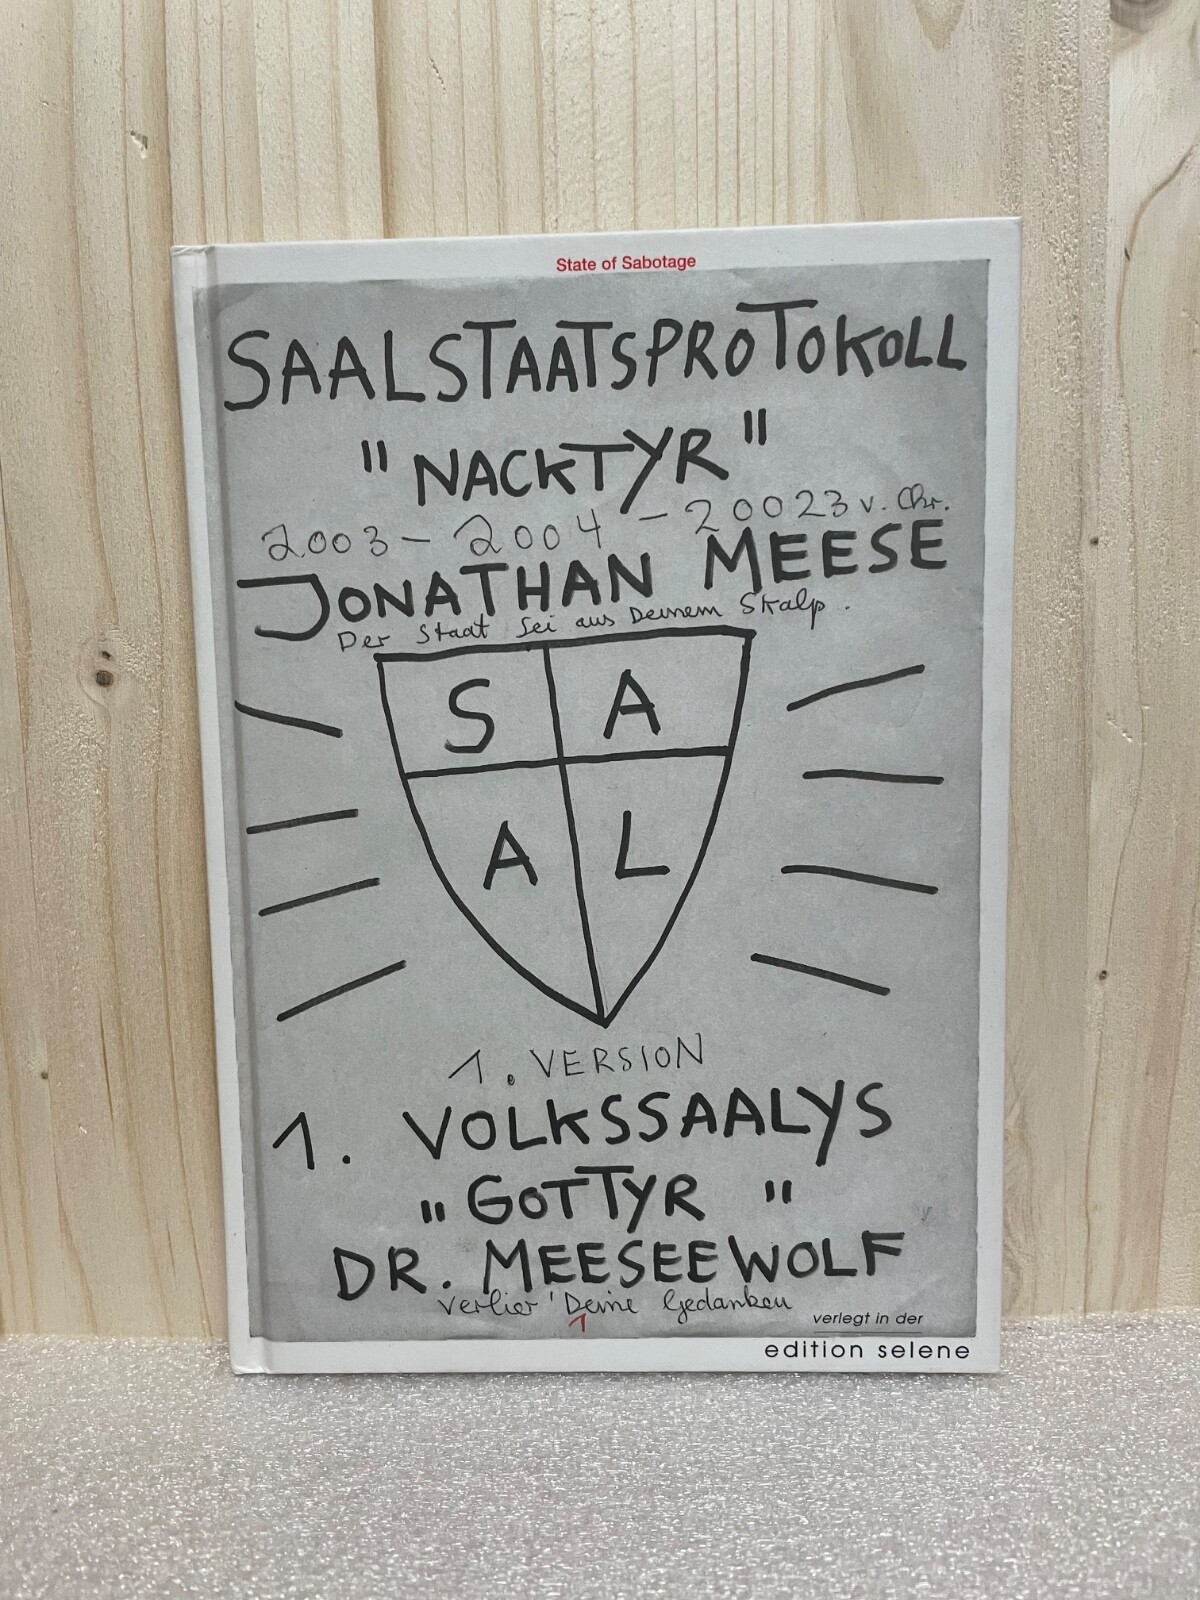 State of Sabotage
SAALSTAATSPROTOKOLL
"NACKTYR"
2003 - 2004 - 20023 v. Chr.
JONATHAN MEESE
Der Staat sei aus Deinem Skalp.
S A
A L
1. VERSION
1. VOLKSSAALYS
"GOTTYR"
DR. MEESEEWOLF
Verlier' Deine Gedanken
1
verlegt in der
edition selene